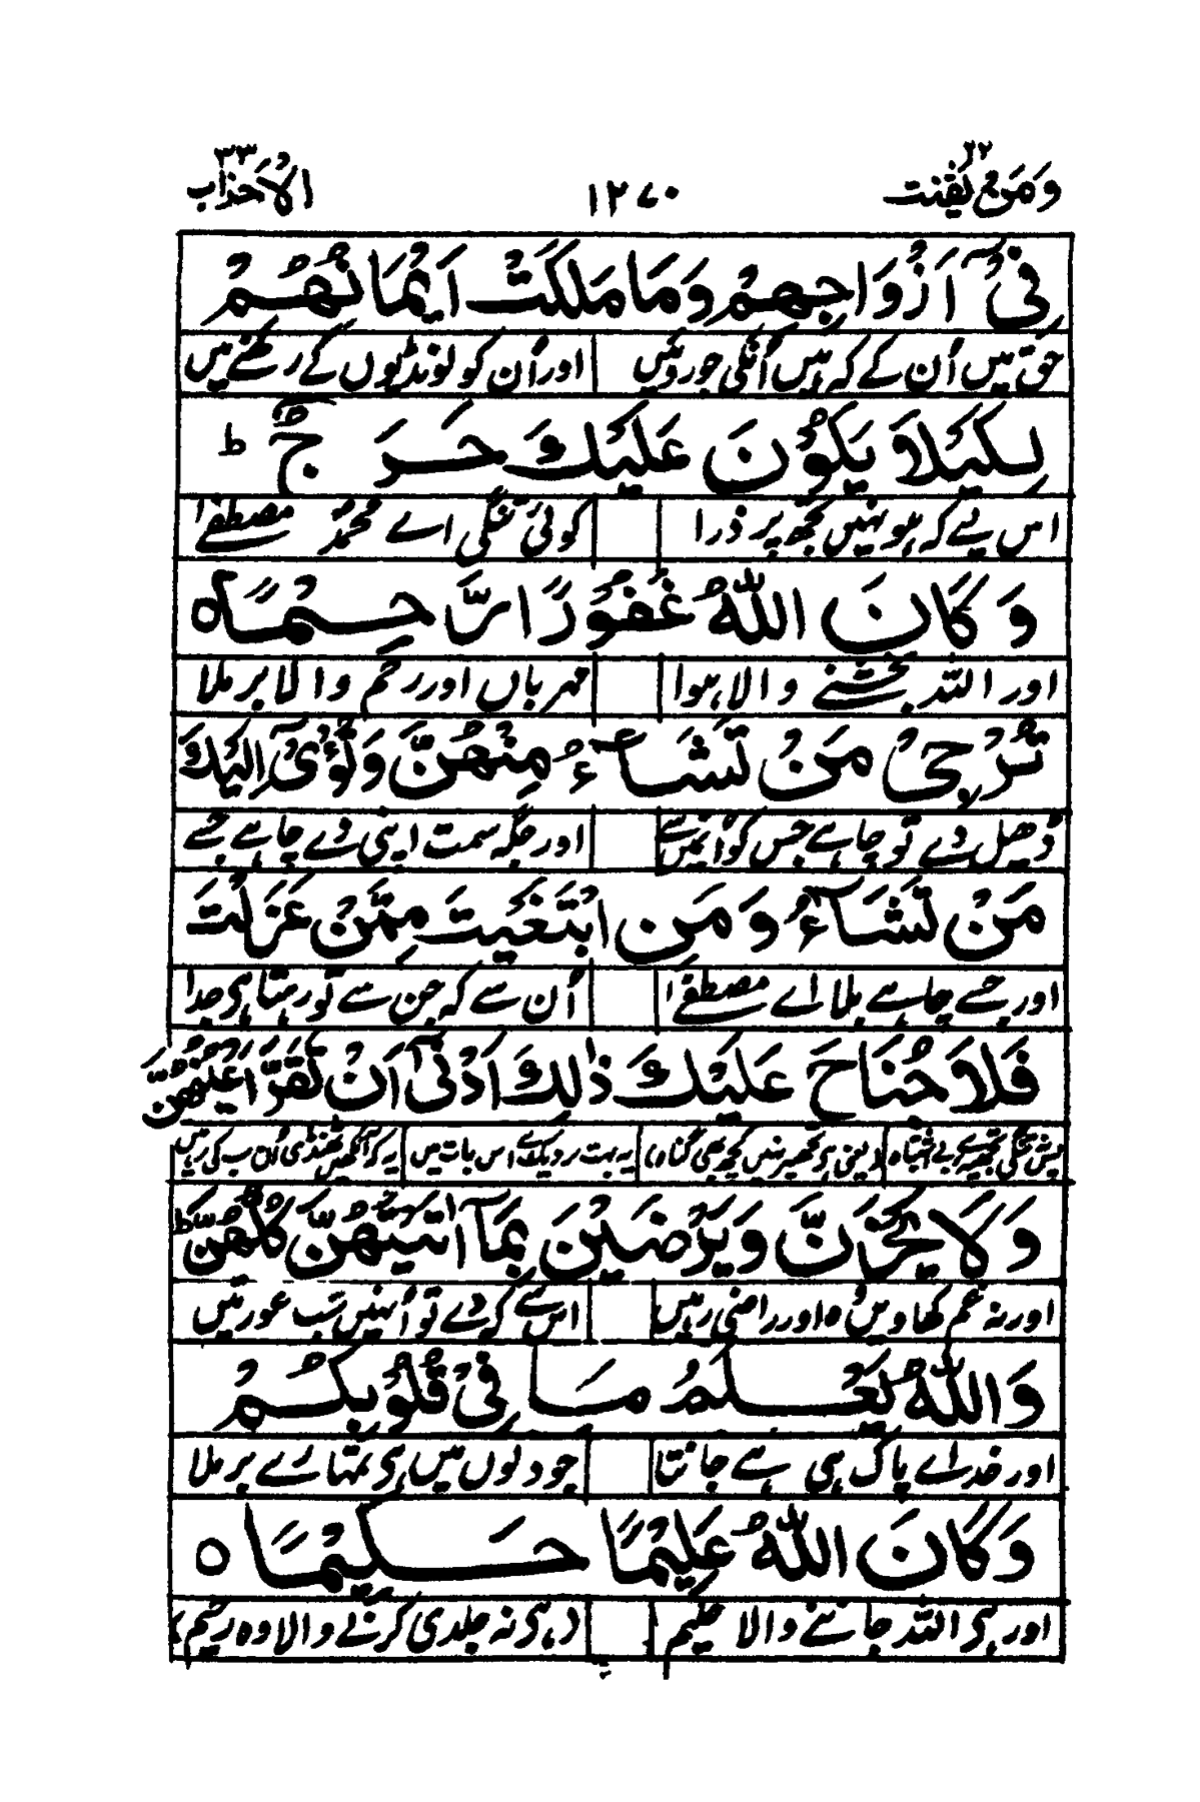 ومن یقنت ۲۲ ۱۲۷۰ الاحزاب ۳۳
فِیْۤ اَزْوَاجِهِمْ وَمَا مَلَكَتْ اَیْمَانُهُمْ
حق میں اُن کے کہ ہیں اُنکی جوروئیں اور اُن کو لونڈیوں کے رکھنے میں
لِكَیْلَا یَكُوْنَ عَلَیْكَ حَرَجٌ ؕ
اس لیے کہ ہو نہیں تجھ پر ذرا کوئی تنگی اے محمدؐ مصطفےٰ
وَكَانَ اللّٰهُ غَفُوْرًا رَّحِیْمًا ○
اور اللہ بخشنے والا ہوا مہرباں اور رحم والا برملا
تُرْجِیْ مَنْ تَشَآءُ مِنْهُنَّ وَتُؤْیْۤ اِلَیْكَ
ڈھیل دے تو چاہے جس کو اُنمیں سے اور جگہ سمت اپنی دے چاہے جسے
مَنْ تَشَآءُ وَمَنِ ابْتَغَیْتَ مِمَّنْ عَزَلْتَ
اور جسے چاہے بلا اے مصطفےٰ اُن سے کہ جن سے تو رہتا ہی جدا
فَلَا جُنَاحَ عَلَیْكَ ذٰلِكَ اَدْنٰۤی اَنْ تَقَرَّ اَعْیُنُهُنَّ
تنگی تجھ پہ بے اشتباہ (یعنی ہی تجھپر نہیں کچھ بھی گناہ) یہ بہت نزدیک ہے اس بات میں یہ کہ آنکھیں ٹھنڈی اُن سب کی رہیں
وَلَا یَحْزَنَّ وَیَرْضَیْنَ بِمَاۤ اٰتَیْتَهُنَّ كُلُّهُنَّ ؕ
اور نہ غم کھاویں وہ اور راضی رہیں اس سے کہ دے تو اُنہیں سب عورتیں
وَاللّٰهُ یَعْلَمُ مَا فِیْ قُلُوْبِكُمْ
اور خدائے پاک ہی ہے جانتا جو دلوں میں ہی تمہارے برملا
وَكَانَ اللّٰهُ عَلِیْمًا حَكِیْمًا ○
اور ہی اللہ جاننے والا حلیم (ہی نہ جلدی کرنے والا وہ رحیم)